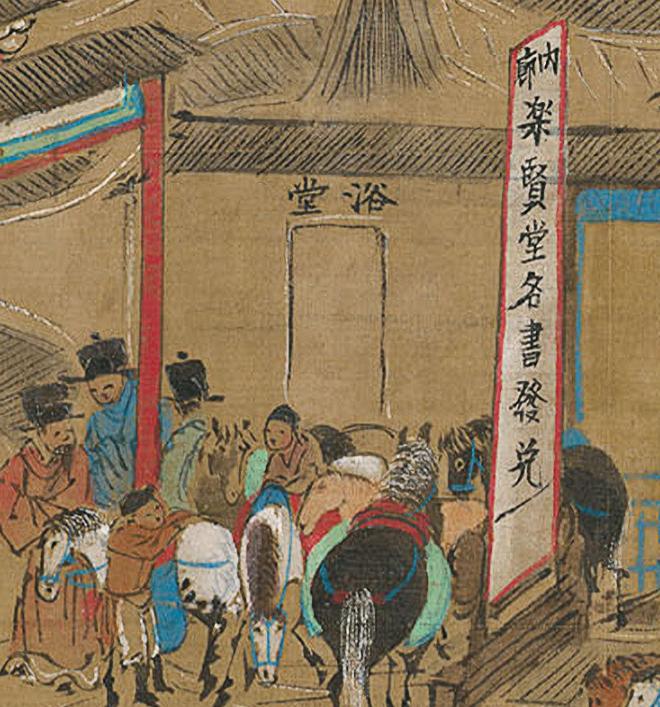 内廊
楽賢堂名書發兑
浴堂